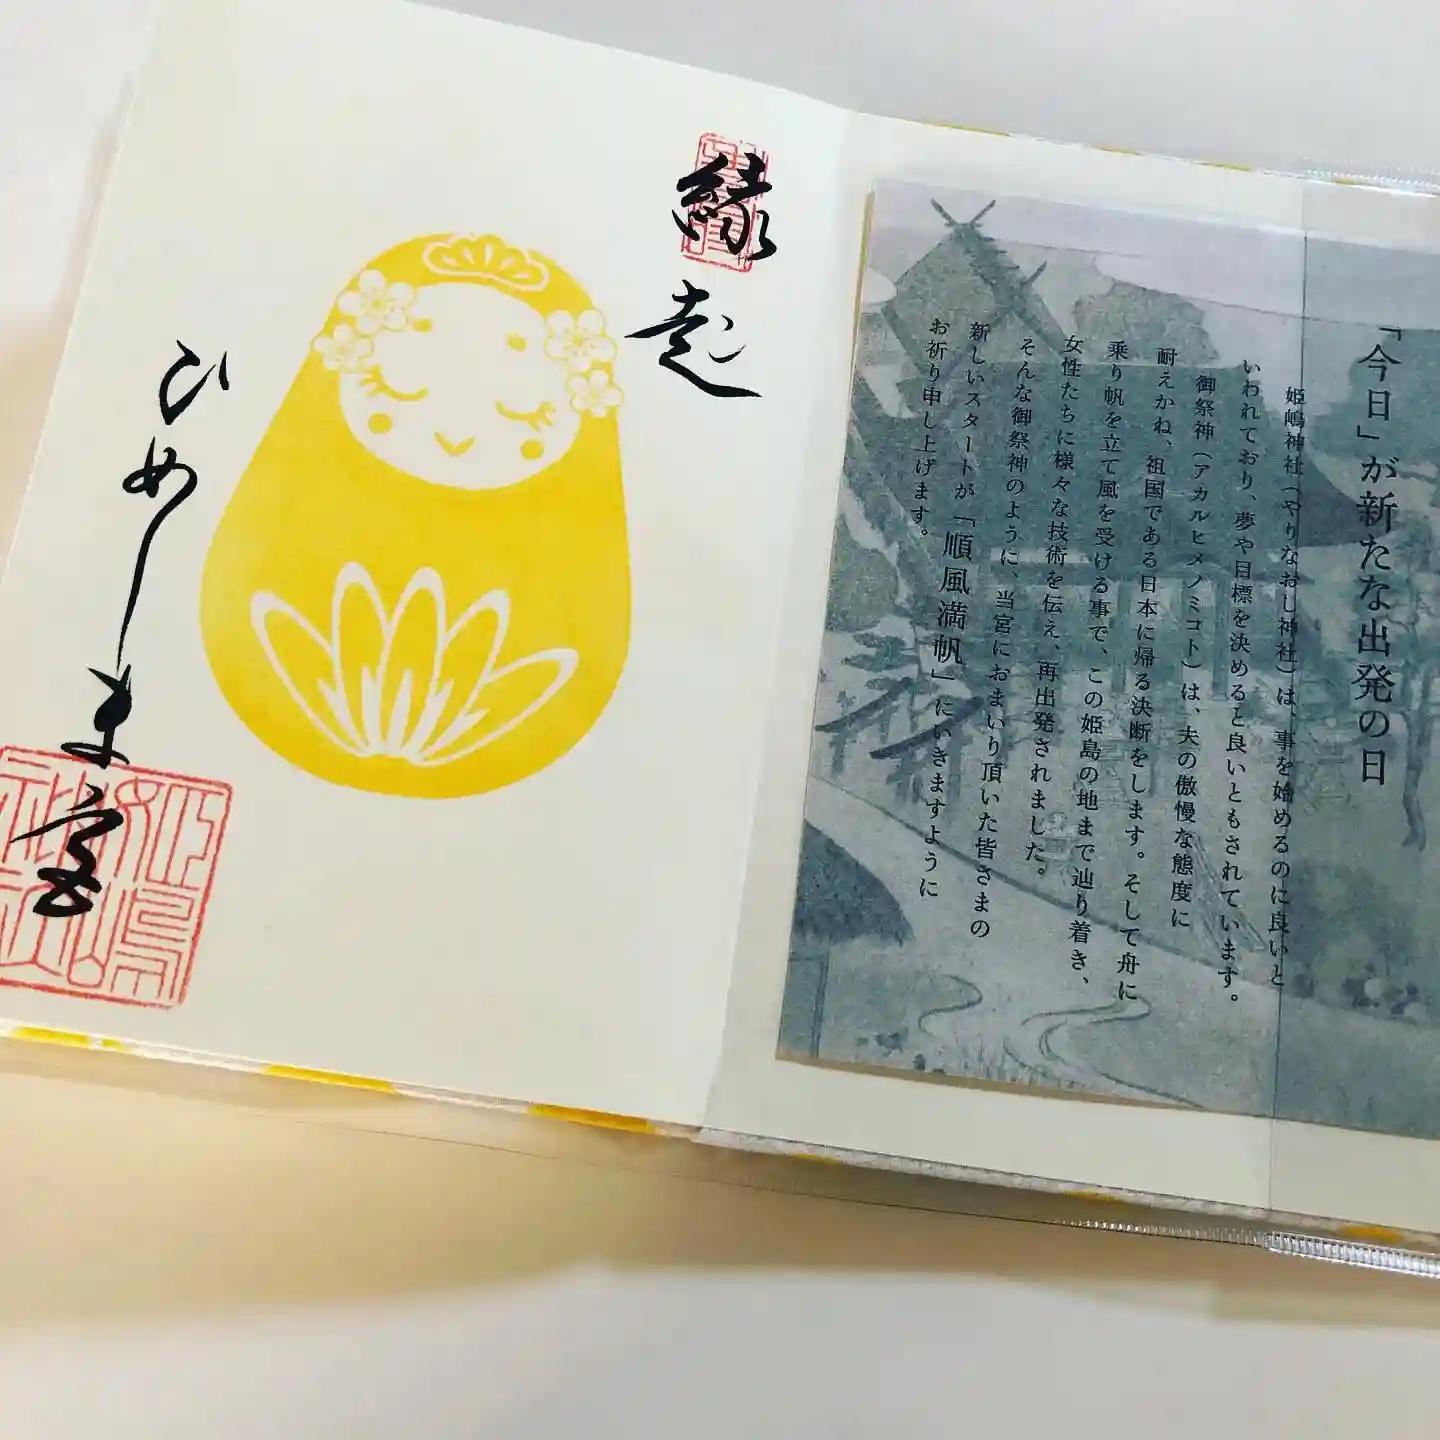 「今日」が新たな出発の日
姫嶋神社（やりなおし神社）は、事を始めるのに良いと
いわれており、夢や目標を決めると良いともされています。
御祭神（アカルヒメノミコト）は、夫の傲慢な態度に
耐えかね、祖国である日本に帰る決断をします。そして舟に
乗り帆を立て風を受ける事で、この姫島の地まで辿り着き、
女性たちに様々な技術を伝え、再出発されました。
そんな御祭神のように、当宮におまいり頂いた皆さまの
新しいスタートが「順風満帆」にいきますように
お祈り申し上げます。
縁起
ひめしま宮
姫嶋神社